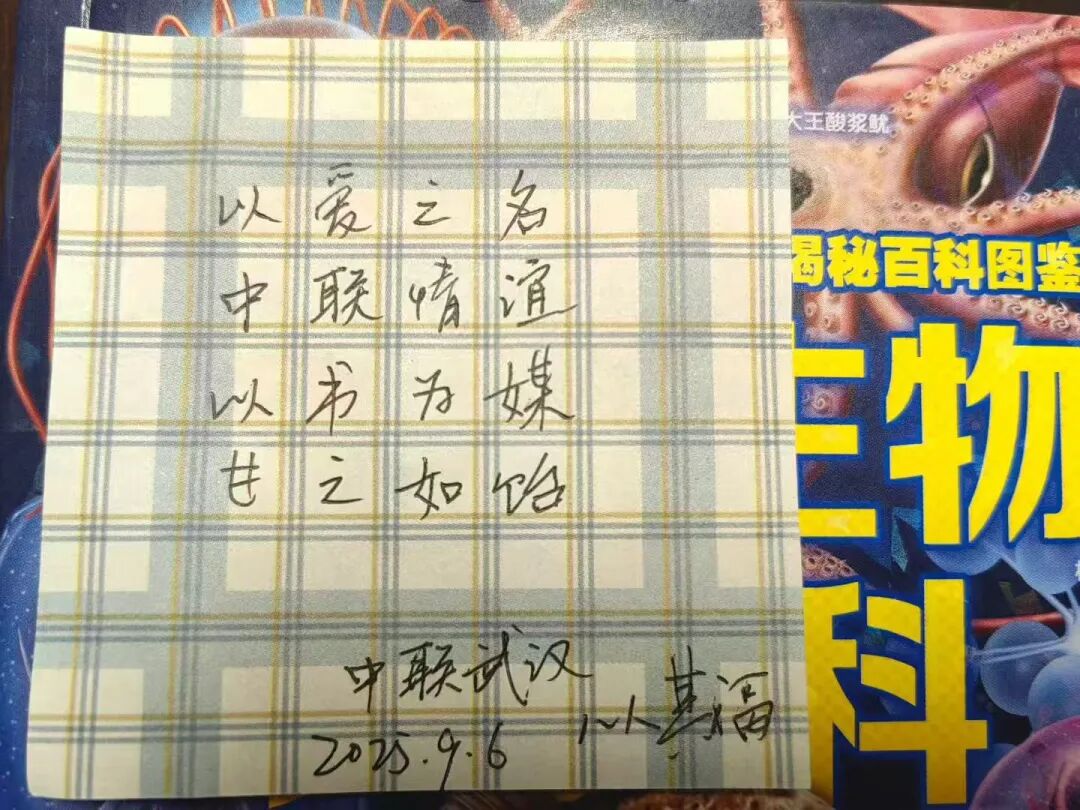 以爱之名
中联情谊
以书为媒
甘之如饴
中联武汉
2025.9.6
大王酸浆鱿
揭秘百科图鉴
生物
科